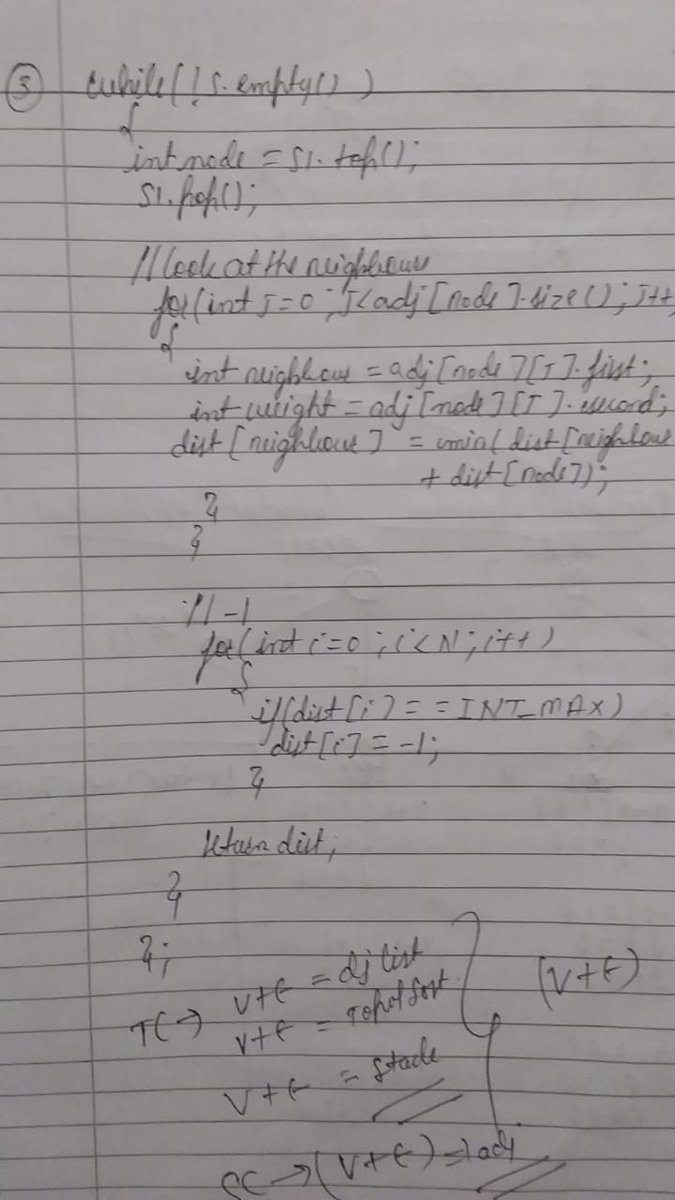 ③ while(!s.empty())
{
int node = s1.top();
s1.pop();
// look at the neighbour
for(int J=0; J<adj[node].size(); J++
{
int neighbour = adj[node][J].first;
int weight = adj[node][J].second;
dist[neighbour] = min(dist[neighbour
+ dist[node]);
}
}
// -1
for(int i=0; i<N; i++)
{
if(dist[i] == INT_MAX)
dist[i] = -1;
}
return dist;
}
};
TC → V+E = dj list
V+E = Topo sort
(V+E)
V+E = stack
SC → (V+E) → adj